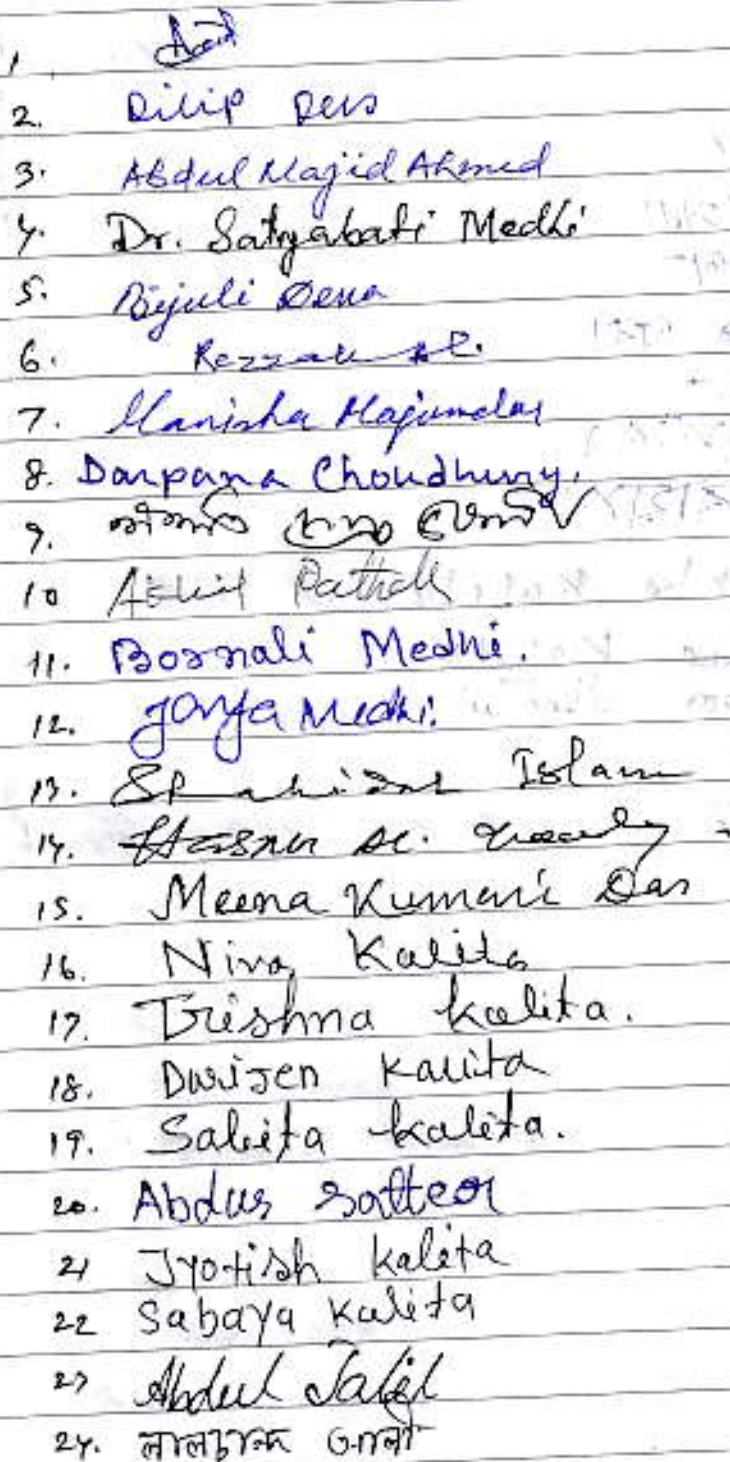 1.
2. Dilip Das
3. Abdul Majid Ahmed
4. Dr. Satyabati Medhi
5. Bijuli Deka
6. Rezzak
7. Manisha Majumdar
8. Darpana Choudhury.
9.
10 Akhil Pathak
11. Bornali Medhi.
12. Jonya Medhi.
13. Shahidul Islam
14.
15. Meena Kumari Das
16. Niva Kalita
17. Trishna kalita.
18. Dwijen Kalita
19. Sabita kalita.
20. Abdus Satter
21 Jyotish Kalita
22 Sabaya Kalita
23 Abdul Jalil
24. লালচান্দ আলী